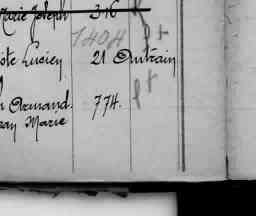 Marie Joseph 316
1404 pt
ôte Lucien 21 Autrain
pt
n Armand. 774.
ean Marie